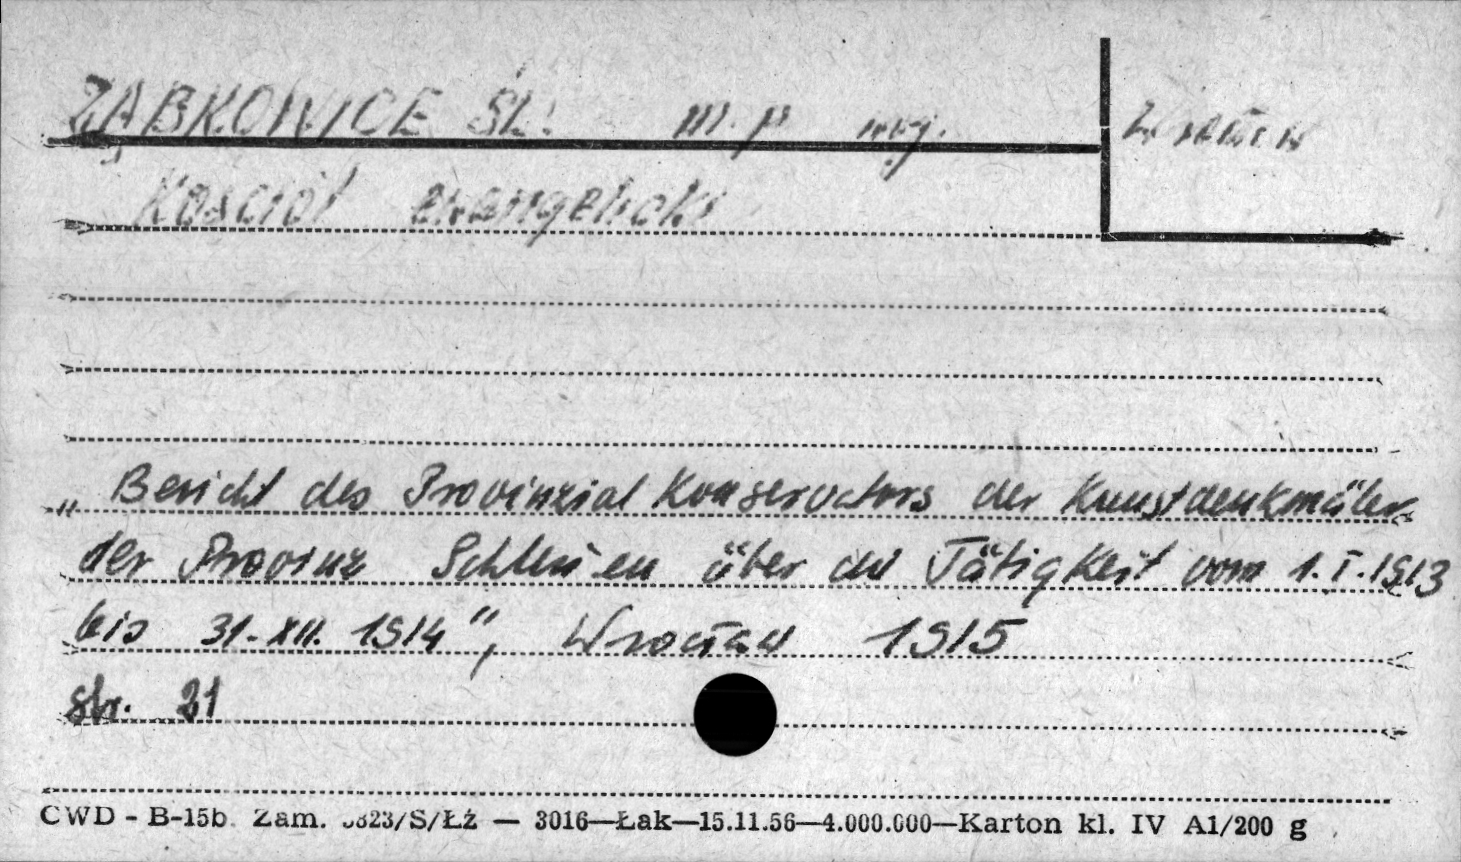 ZĄBKOWICE ŚL. m. p. woj. Wrocław
Kościół ewangelicki
„Bericht des Provinzial Konservators der Kunstdenkmäler
der Provinz Schlesien über die Tätigkeit vom 1.I.1913
bis 31.XII.1914", Wrocław 1915
str. 21
CWD - B-15b. Zam. 823/S/Łż — 3016—Łak—15.11.56—4.000.000—Karton kl. IV A1/200 g